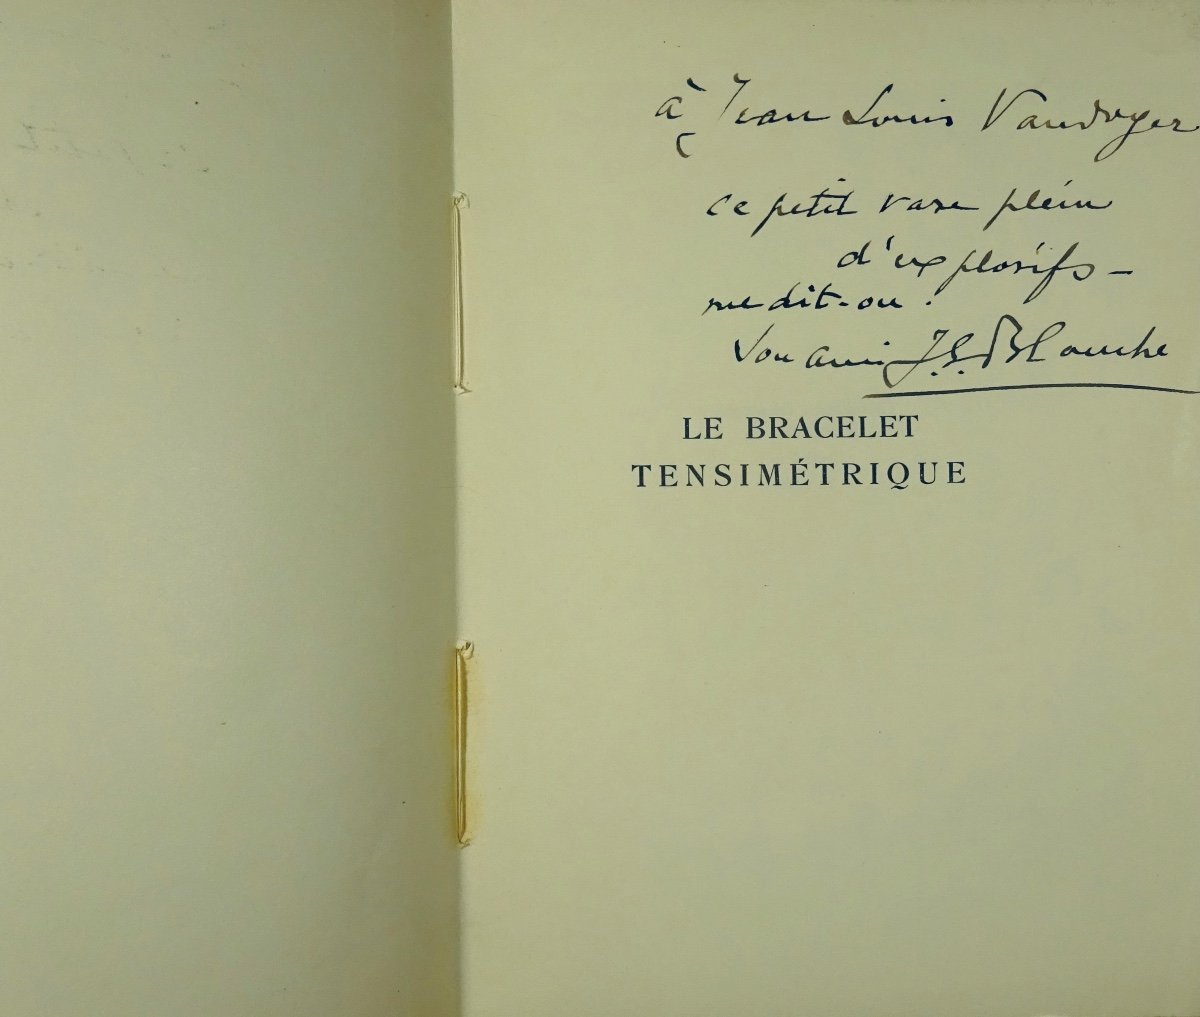 à Jean Louis Vaudoyer
ce petit vase plein
d'explosifs –
me dit-on.
Son ami J.E. Blanche
LE BRACELET
TENSIMÉTRIQUE